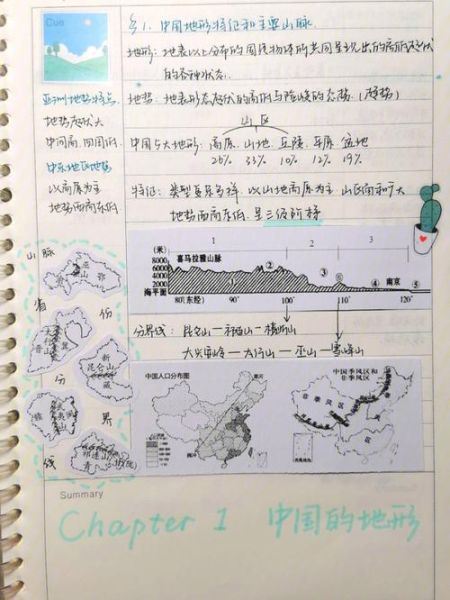 Cue
§1. 中国地形特征和主要山脉.
地形: 地表以上分布的固定物体的共同呈现出的高低起伏
的各种状态.
亚洲地势特点
地势: 地表形态起伏的高低与险峻的态势. (趋势)
地势起伏大
山区
中间高, 四周低
中国五大地形: 高原, 山地, 丘陵, 平原, 盆地
26% 33% 10% 12% 19%
中东地区地势
以高原为主
特征: 类型复杂多样, 以山地高原为主, 山区面积广大
地势西高东低
地势西高东低, 呈三级阶梯
山脉
省份
分界线
1 2 3
(米)
喜马拉雅山脉
8000
6000
4000
2000
海平面
① ② ③ ④ ⑤ ⑥
南京
80°(东经) 90° 100° 110° 120°
新
昆仑山
藏
祁连山
青
分界线: 昆仑山—祁连山—横断山
大兴安岭—太行山—巫山—雪峰山
中国人口分布图
黑河
腾冲
中国季风区和
非季风区
非季风区
季
风
区
Summary
Chapter 1 中国的地形